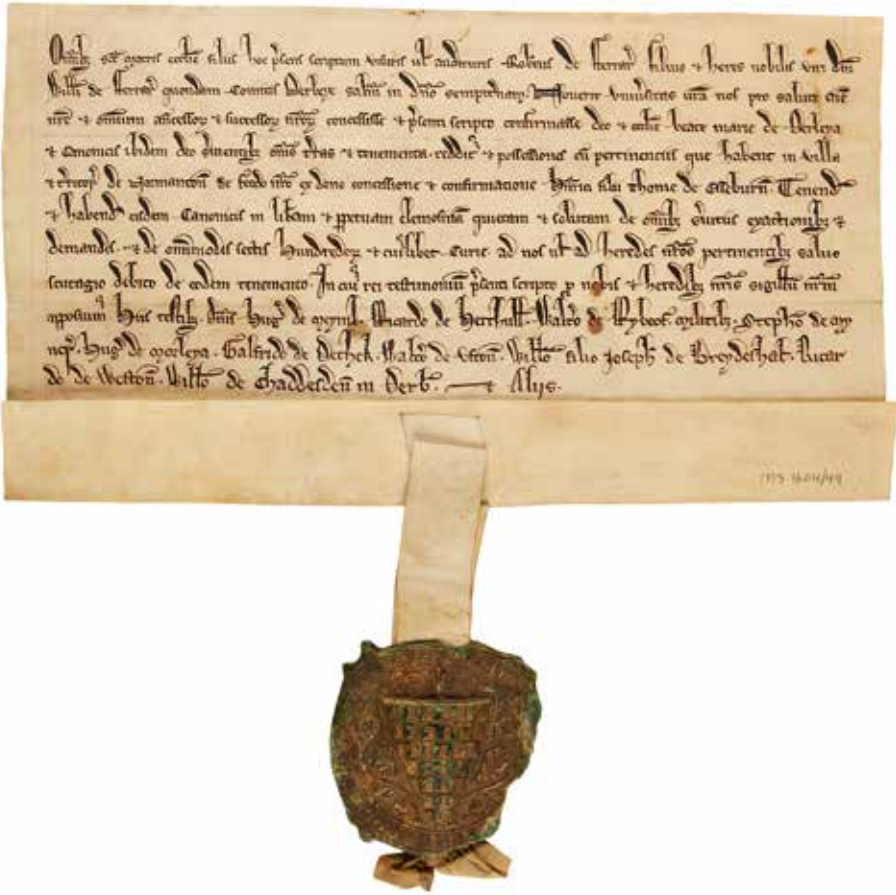 Omib; sce matris ecclie filiis hoc psens scriptum visuris ul audituris Robtus de fferrar filius ⁊ heres nobilis viri dni
Willi de fferrar quondam Comitis Derbeye saltm in dno sempitnam. Noverit universitas vra nos pro salute aie
nre ⁊ omnium ancessor ⁊ successor nror concessisse ⁊ psenti scripto confirmasse deo ⁊ ecclie beate marie de Derleya
⁊ Canonicis ibidem deo svientib; omes tras ⁊ tenementa. reddit ⁊ possessiones cu pertinenciis que habent in villa
⁊ tritor de Wormanton de feodo nro ex dono concessione ⁊ confirmacione Henrici filii Thome de Esseburn. Tenend
⁊ habend eisdem Canonicis in libam ⁊ ppetuam elemosinam quietam ⁊ solutam de omib; svitiis exactionib; ⁊
demandis. ⁊ de omimodis sectis hundredor ⁊ cuilibet Curie ad nos ul ad heredes nros pertinentib; salvo
scutagio debito de eodem tenemento. In cui rei testimonium psenti scripto p nobis ⁊ heredib; nris sigillu nrm
apposuim. Hiis testib;. dnis Hug de Meynil. Ricardo de Herthull. Walto de Rybof. militib;. Stepho de
Hug de Morleya. Galfrido de Dethek. Walto de Ufton. Willo filio Joseph de Breydeshal. Ricar
do de Weston. Willo de Chaddesden in Derb. ⁊ Aliis.